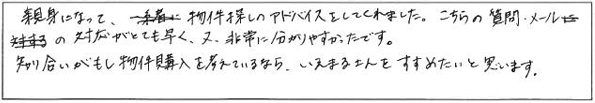 親身になって、物件探しのアドバイスをしてくれました。こちらの質問・メール
の対応がとても早く、又、非常に分かりやすかったです。
知り合いがもし物件購入を考えているなら、いえまるさんをすすめたいと思います。